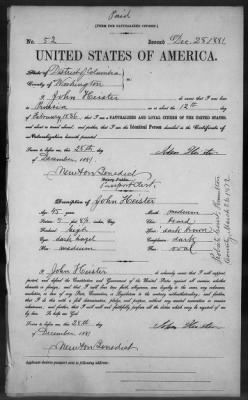 Paid
[FORM FOR NATURALIZED CITIZEN.]
No. 52 Issued Dec. 28 1881
UNITED STATES OF AMERICA.
State of District of Columbia
County of Washington
I, John Heister do swear that I was born
in on or about the 12th day
of February 1836; that I am a NATURALIZED AND LOYAL CITIZEN OF THE UNITED STATES,
and about to travel abroad; and further, that I am the Identical Person described in the Certificate of
Naturalization herewith presented.
Sworn to before me this 28th day
of December 1881
John Heister
Newton Benedict
Notary Public.
Passport Clerk.
Description of John Heister
Age: 45 years Mouth: medium
Stature: 5 feet 8½ inches, Eng. Chin: beard
Forehead: high Hair: dark brown
Eyes: dark hazel Complexion: dark
Nose: medium Face: oval
I, John Heister do solemnly swear that I will support,
protect and defend the Constitution and Government of the United States against all enemies, whether
domestic or foreign; and that I will bear true faith, allegiance, and loyalty to the same, any ordinance,
resolution, or law of any State, Convention, or Legislature to the contrary notwithstanding; and further,
that I do this with a full determination, pledge, and purpose, without any mental reservation or evasion
whatsoever; and further, that I will well and faithfully perform all the duties which may be required of me
by law. So help me God.
Sworn to before me this 28th day
of December 1881
John Heister
Newton Benedict
Applicant desires passport sent to